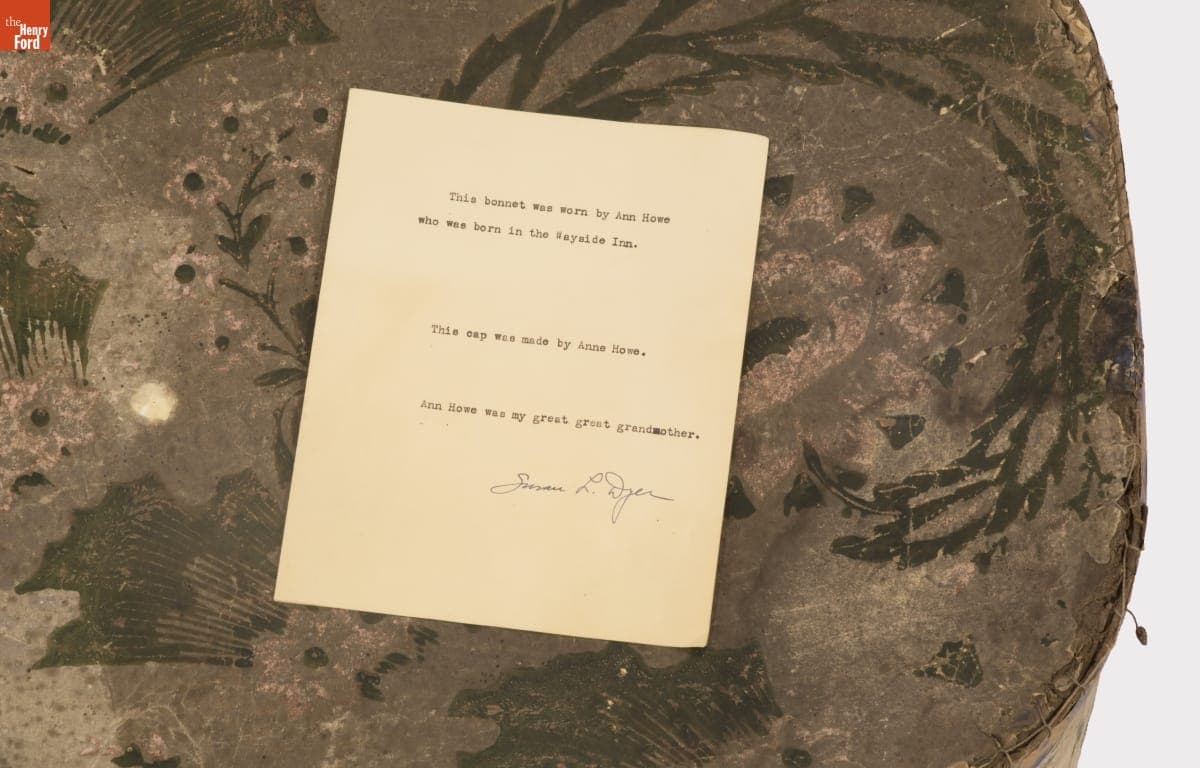 the
Henry
Ford
This bonnet was worn by Ann Howe
who was born in the Wayside Inn.
This cap was made by Anne Howe.
Ann Howe was my great great grandmother.
Susan L. Dyer